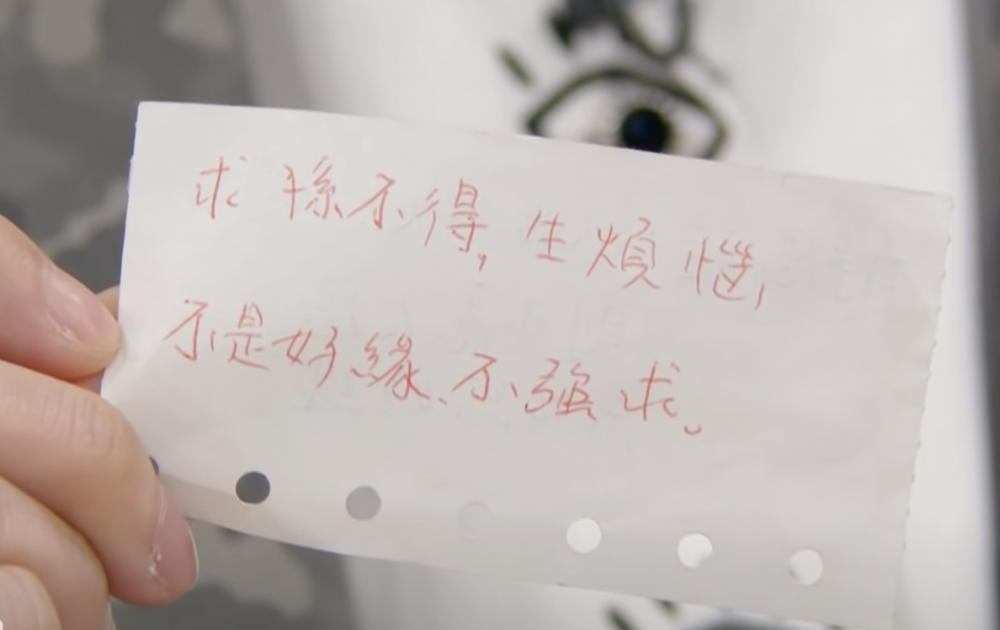 求孫不得,生煩惱,
不是好緣、不強求。